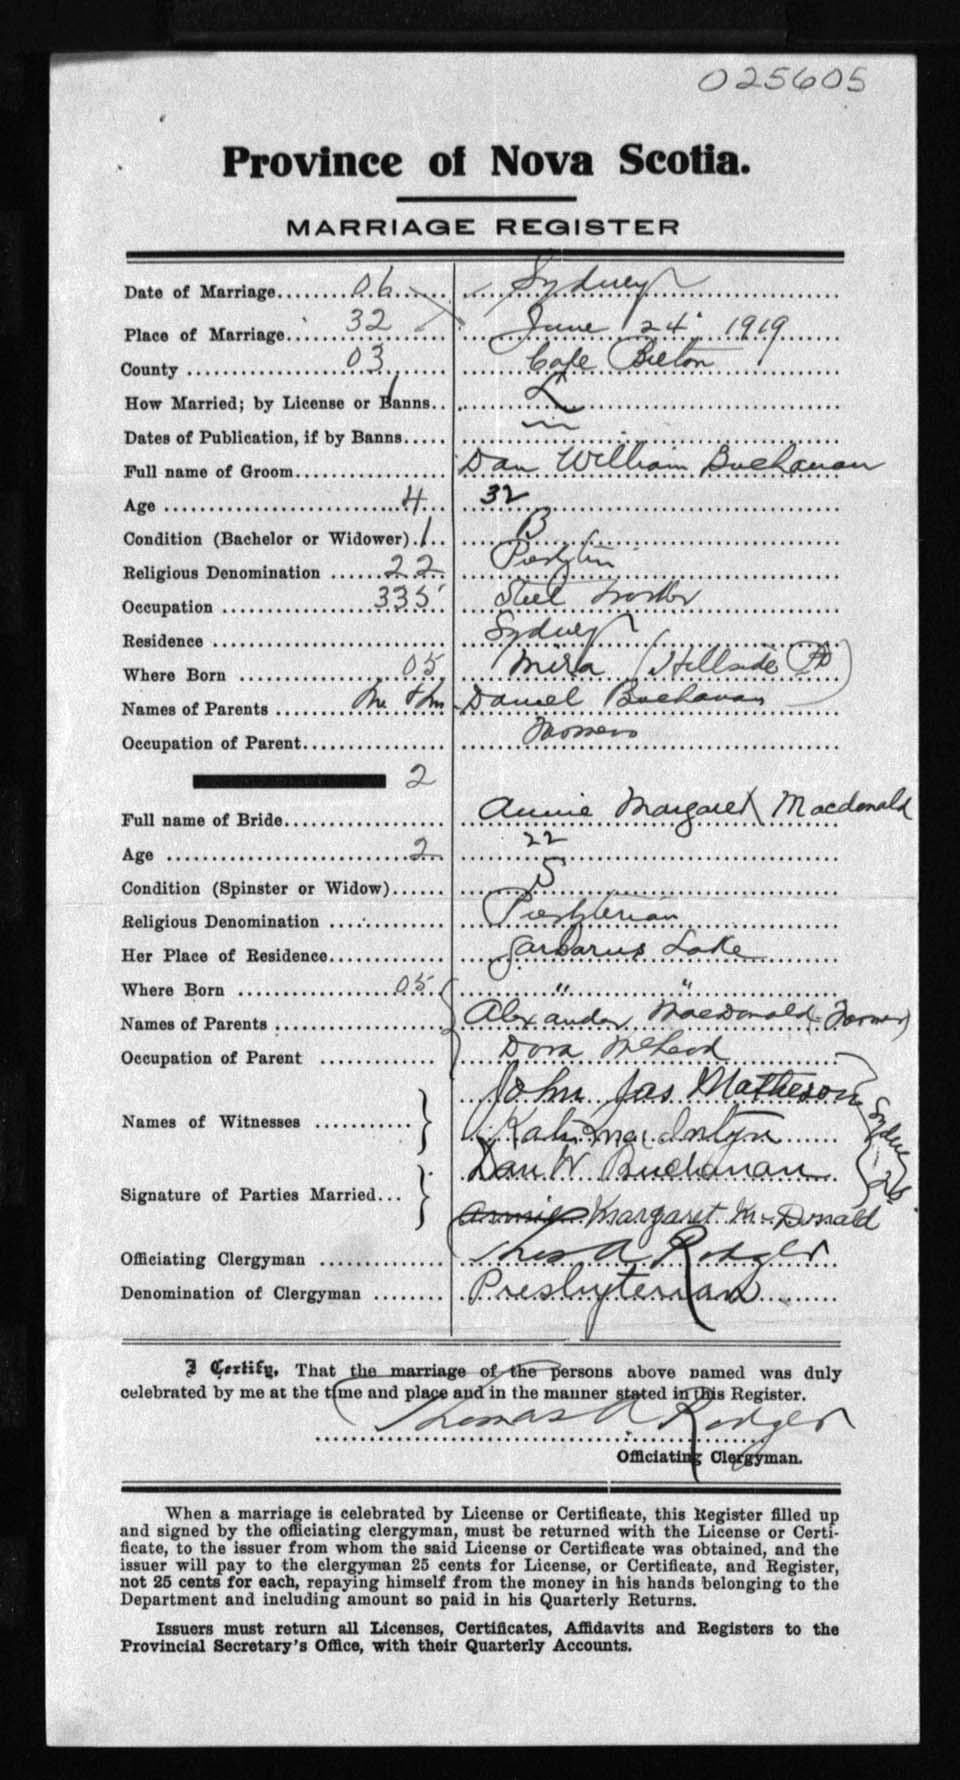 025605
Province of Nova Scotia.
MARRIAGE REGISTER
Date of Marriage 06 Sydney
Place of Marriage 32 June 24 1919
County 03 Cape Breton
How Married; by License or Banns 1 L
Dates of Publication, if by Banns
Full name of Groom Dan William Buchanan
Age 4 32
Condition (Bachelor or Widower) 1 B
Religious Denomination 22
Occupation 335 Steel Worker
Residence Sydney
Where Born 05 Mira (Hillside
Names of Parents Daniel Buchanan
Occupation of Parent
2
Full name of Bride Annie Margaret Macdonald
Age 2 22
Condition (Spinster or Widow) S
Religious Denomination Presbyterian
Her Place of Residence Gabarus Lake
Where Born 05 " "
Names of Parents Alexander MacDonald (Farmer)
Occupation of Parent Dora McLeod
John Jas Matheson
Names of Witnesses Sydney
Dan W Buchanan
Signature of Parties Married
Annie Margaret McDonald
Officiating Clergyman Thos A Rodger
Denomination of Clergyman Presbyterian
I Certify, That the marriage of the persons above named was duly
celebrated by me at the time and place and in the manner stated in this Register.
Thomas A Rodger
Officiating Clergyman.
When a marriage is celebrated by License or Certificate, this Register filled up
and signed by the officiating clergyman, must be returned with the License or Certi-
ficate, to the issuer from whom the said License or Certificate was obtained, and the
issuer will pay to the clergyman 25 cents for License, or Certificate, and Register,
not 25 cents for each, repaying himself from the money in his hands belonging to the
Department and including amount so paid in his Quarterly Returns.
Issuers must return all Licenses, Certificates, Affidavits and Registers to the
Provincial Secretary's Office, with their Quarterly Accounts.